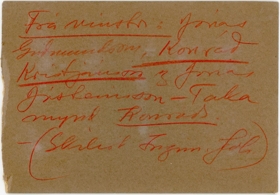 Frá vinstri: Jónas
Guðmundsson, Konráð
Kristjánsson & Jónas
Jóhannsson – Taka
mynd Konráðs.
– (Skilist Ingim. Jóh)